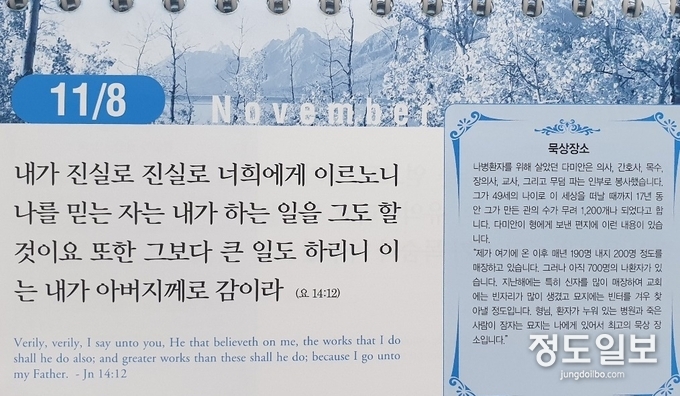 11/8
November
내가 진실로 진실로 너희에게 이르노니
나를 믿는 자는 내가 하는 일을 그도 할
것이요 또한 그보다 큰 일도 하리니 이
는 내가 아버지께로 감이라 (요 14:12)
Verily, verily, I say unto you, He that believeth on me, the works that I do
shall he do also; and greater works than these shall he do; because I go unto
my Father. - Jn 14:12
묵상장소
나병환자를 위해 살았던 다미안은 의사, 간호사, 목수,
장의사, 교사, 그리고 무덤 파는 인부로 봉사했습니다.
그가 49세의 나이로 이 세상을 떠날 때까지 17년 동
안 그가 만든 관의 수가 무려 1,200개나 되었다고 합
니다. 다미안이 형에게 보낸 편지에 이런 내용이 있습
니다.
“제가 여기에 온 이후 매년 190명 내지 200명 정도를
매장하고 있습니다. 그러나 아직 700명의 나환자가 있
습니다. 지난해에는 특히 신자를 많이 매장하여 교회
에는 빈자리가 많이 생겼고 묘지에는 빈터를 겨우 찾
아낼 정도입니다. 형님, 환자가 누워 있는 병원과 죽은
사람이 잠자는 묘지는 나에게 있어서 최고의 묵상 장
소입니다.”
정도일보
jungdoilbo.com